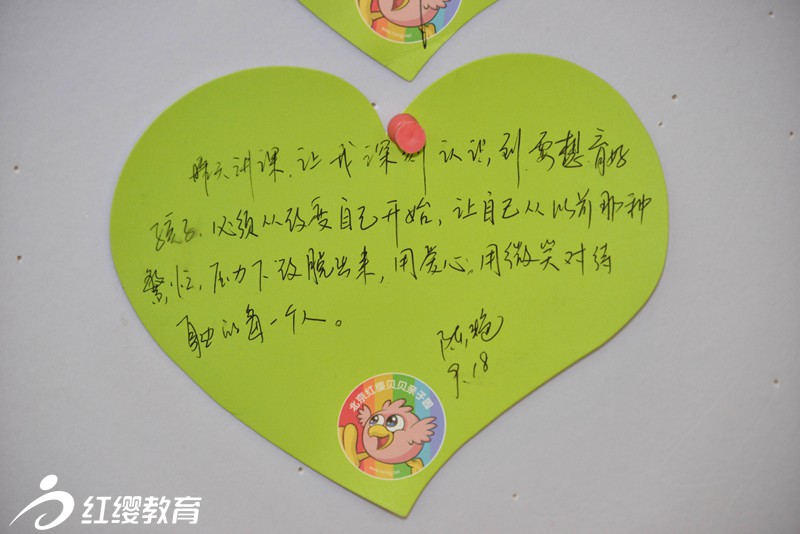 昨天讲课,让我深刻认识到要想育好
孩子,必须从改变自己开始,让自己从以前那种
繁忙,压力下改脱出来,用爱心,用微笑对待
身边的每一个人。
陈艳
9.18
北京红缨贝贝亲子园
红缨教育